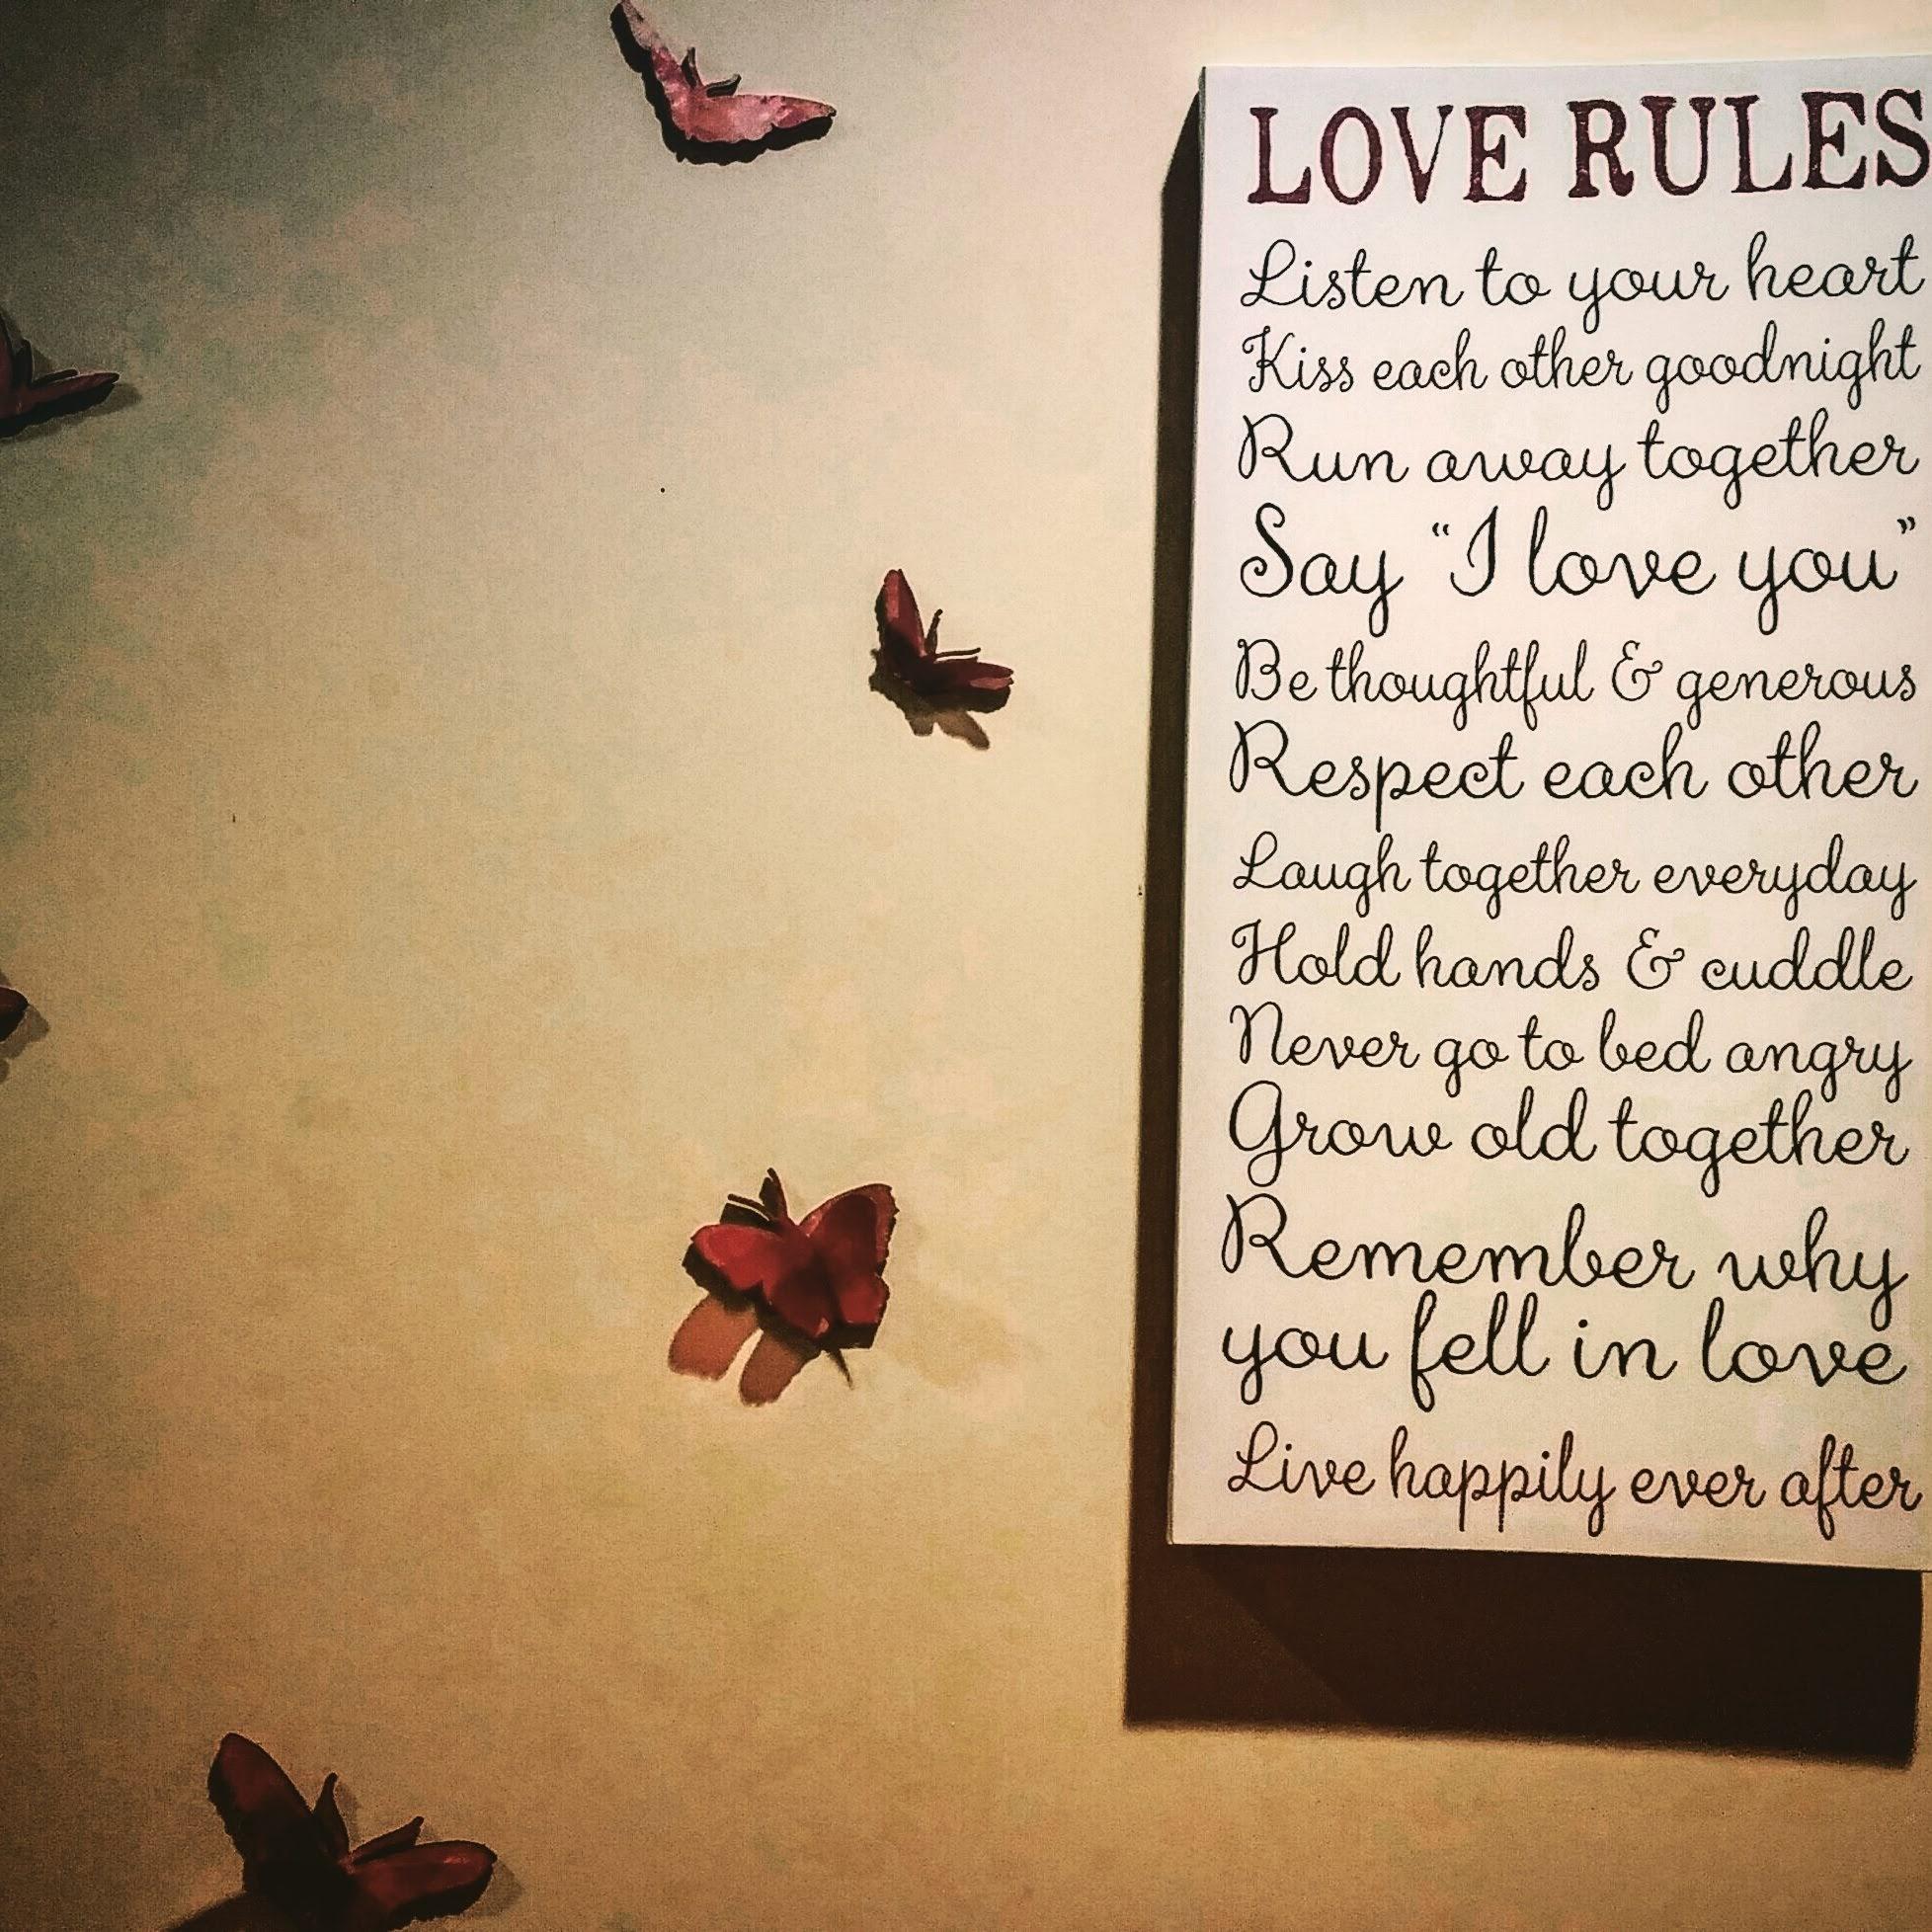 LOVE RULES
Listen to your heart
Kiss each other goodnight
Run away together
Say “I love you”
Be thoughtful & generous
Respect each other
Laugh together everyday
Hold hands & cuddle
Never go to bed angry
Grow old together
Remember why
you fell in love
Live happily ever after